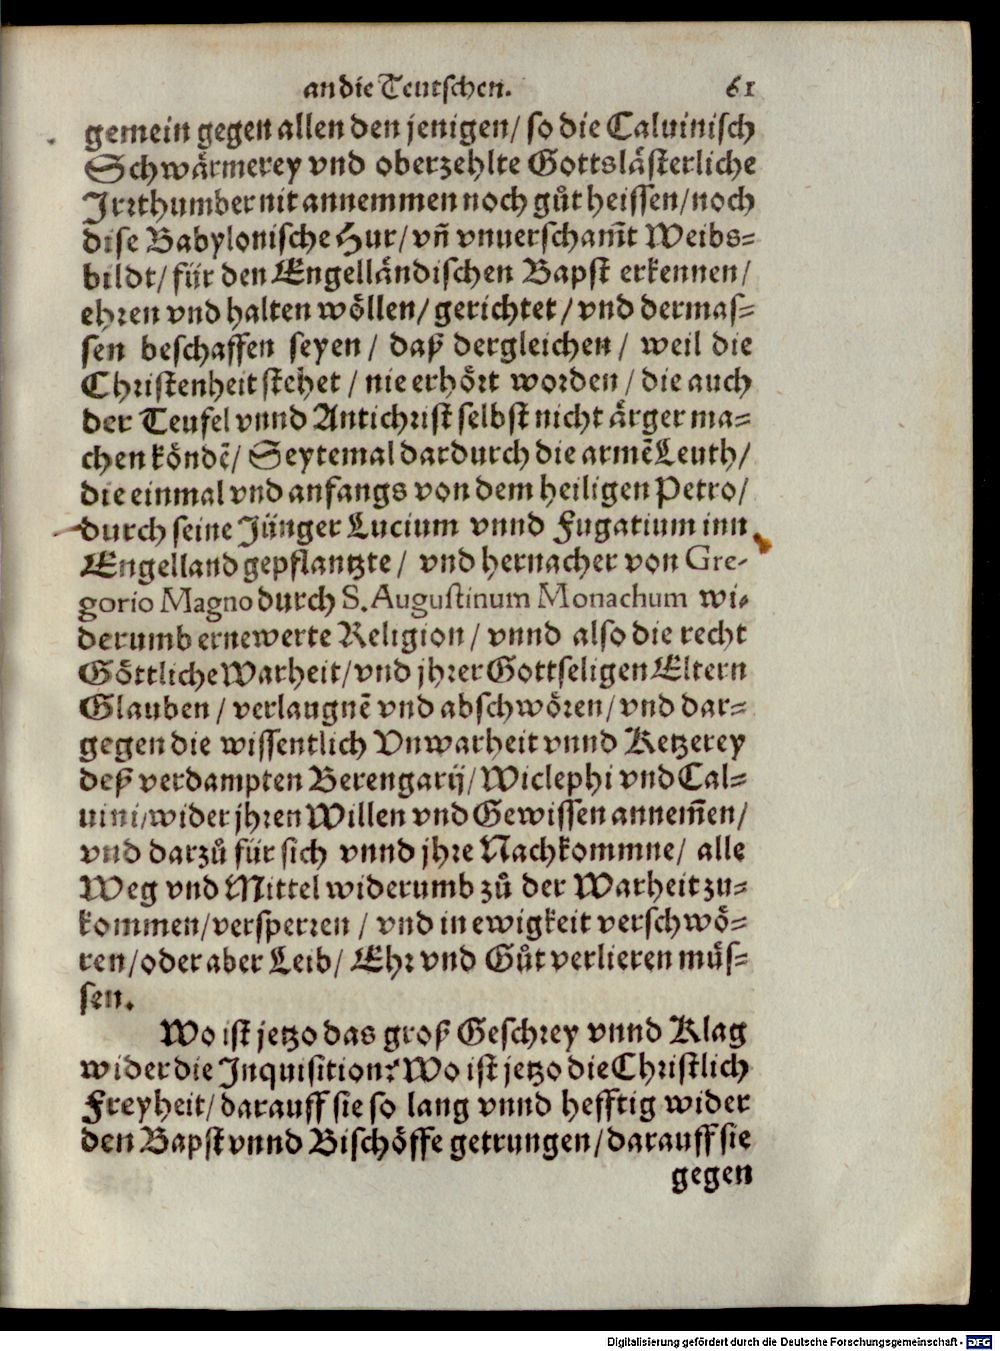 an die Teutschen. 61
gemein gegen allen den jenigen/ so die Caluinisch
Schwärmerey vnd oberzehlte Gottslästerliche
Irrthumber nit annemmen noch gůt heissen/ noch
dise Babylonische Hur/ vñ vnuerscham̃t Weibs=
bildt/ für den Engelländischen Bapst erkennen/
ehren vnd halten wöllen/ gerichtet/ vnd dermas=
sen beschaffen seyen/ daß dergleichen/ weil die
Christenheit stehet/ nie erhört worden/ die auch
der Teufel vnnd Antichrist selbst nicht ärger ma=
chen köndẽ/ Seytemal dardurch die armẽ Leuth/
die einmal vnd anfangs von dem heiligen Petro/
durch seine Jünger Lucium vnnd Fugatium inn
Engelland gepflantzte/ vnd hernacher von Gre-
gorio Magno durch S. Augustinum Monachum wi-
derumb ernewerte Religion/ vnnd also die recht
Göttliche Warheit/ vnd jhrer Gottseligen Eltern
Glauben/ verlaugnẽ vnd abschwören/ vnd dar=
gegen die wissentlich Vnwarheit vnnd Ketzerey
deß verdampten Berengarij/ Wiclephi vnd Cal=
uini/ wider jhren Willen vnd Gewissen annem̃en/
vnd darzů für sich vnnd jhre Nachkommne/ alle
Weg vnd Mittel widerumb zů der Warheit zu=
kommen/ versperren/ vnd in ewigkeit verschwö=
ren/ oder aber Leib/ Ehr vnd Gůt verlieren müs=
sen.
Wo ist jetzo das groß Geschrey vnnd Klag
wider die Inquisition? Wo ist jetzo die Christlich
Freyheit/ darauff sie so lang vnnd hefftig wider
den Bapst vnnd Bischöffe getrungen/ darauff sie
gegen
Digitalisierung gefördert durch die Deutsche Forschungsgemeinschaft - DFG